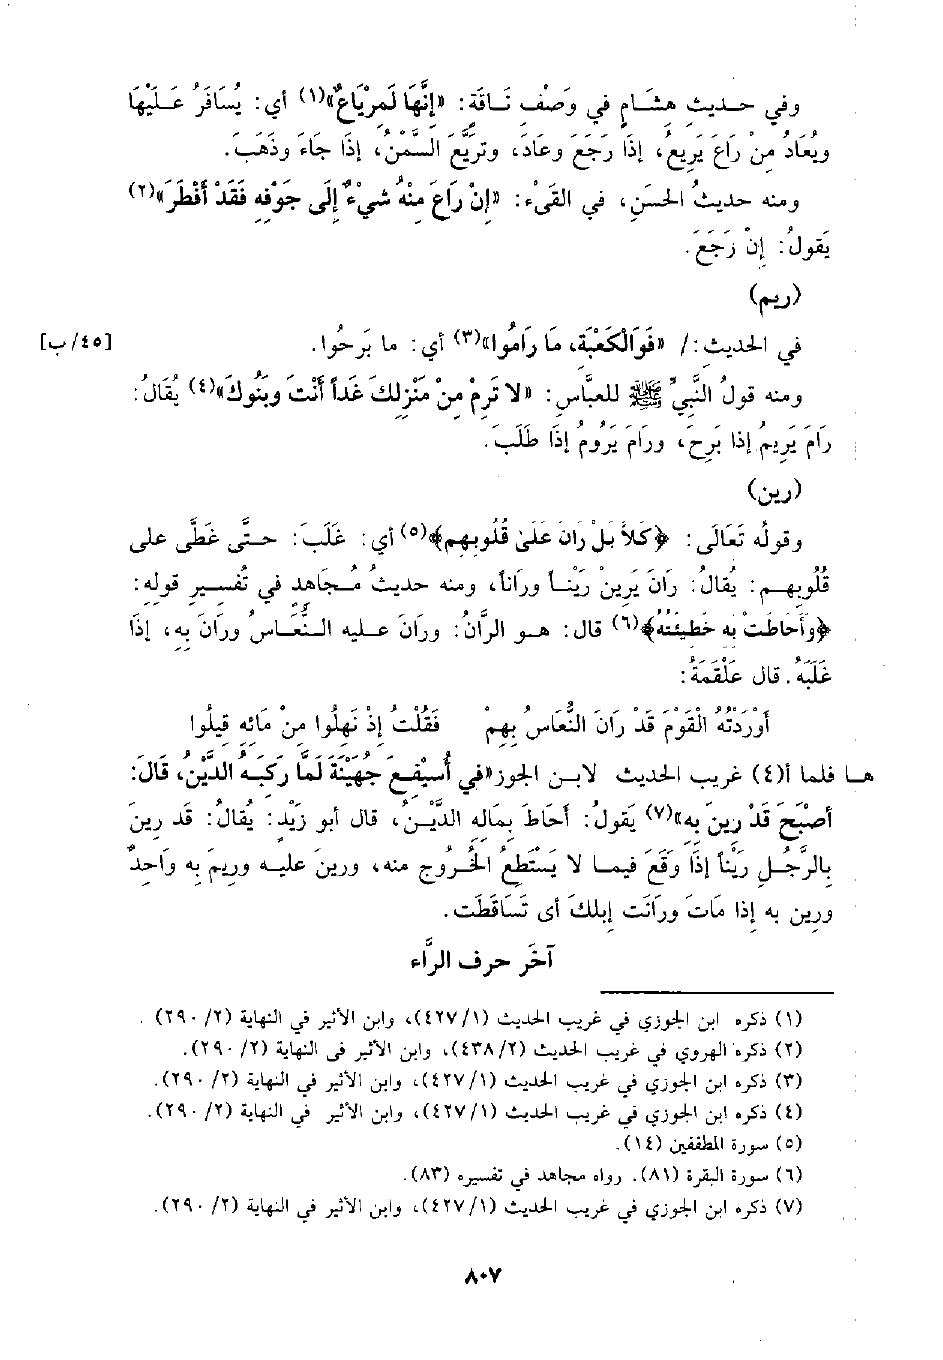 وفي حديث هشام في وَصْف نَاقَة: «إنَّهَا لَمِرْيَاعٌ»(١) أي: يُسَافَرُ عَلَيْهَا
ويُعَادُ مِنْ رَاعَ يَرِيعُ، إذَا رَجَعَ وعَادَ، وتَرَيَّعَ السَّمْنُ، إذَا جَاءَ وذَهَبَ.
ومنه حديثُ الحَسَنِ، في القَيْء: «إنْ رَاعَ مِنْهُ شيْءٌ إلَى جَوْفِهِ فَقَدْ أَفْطَرَ»(٢)
يَقولُ: إنْ رَجَعَ.
(ريم)
في الحديث:/ «فَوَالْكَعْبَةِ، مَا رَامُوا»(٣) أي: ما بَرحُوا. [٤٥/ب]
ومنه قولُ النَّبيِّ ﷺ للعبَّاسِ: «لا تَرِمْ مِنْ مَنْزِلِكَ غَداً أَنْتَ وبَنُوكَ»(٤) يُقَالُ:
رَامَ يَرِيمُ إذا بَرِحَ، ورامَ يَرُومُ إذَا طَلَبَ.
(رين)
وقولُه تَعَالَى: ﴿كَلاَّ بَلْ رَانَ عَلَىٰ قُلُوبِهِم﴾(٥) أي: غَلَبَ: حتَّى غَطَّى على
قُلُوبِهم: يُقالُ: رَانَ يَرِينُ رَيْناً وراناً، ومنه حديثُ مُجَاهد في تَفْسير قوله:
﴿وَأَحَاطَتْ به خَطِيئَتُهُ﴾(٦) قال: هو الرَّانُ: ورَانَ عليه النُّعَاسُ ورَانَ بِهِ، إذَا
غَلَبَهُ. قال عَلْقَمَةُ:
أَوْرَدْتُهُ الْقَوْمَ قَدْ رَانَ النُّعَاسُ بِهِمْ فَقُلْتُ إذْ نَهِلُوا مِنْ مَائه قيلُوا
هـا فلما أ(٤) غريب الحديث لابن الجوز«في أُسَيْفِعَ جُهَيْنَةَ لَمَّا رَكِبَهُ الدَّيْنُ، قَالَ:
أصْبَحَ قَدْ رِينَ بِهِ»(٧) يَقولُ: أحَاطَ بِمَالِهِ الدَّيْنُ، قال أبو زَيْد: يُقالُ: قد رِينَ
بِالرَّجُلِ رَيْناً إذَا وَقَعَ فيما لا يَسْتَطِعُ الخُرُوجَ منه، ورينَ عليه وريمَ به وَاحِدٌ
ورين به إذا مَاتَ ورَانَت إبِلكَ أى تَسَاقَطَت.
آخَر حرف الرَّاء
(١) ذكره ابن الجوزي في غريب الحديث (٤٢٧/١)، وابن الأثير في النهاية (٢٩٠/٢) .
(٢) ذكره الهروي في غريب الحديث (٤٣٨/٢)، وابن الأثير فى النهاية (٢٩٠/٢).
(٣) ذكره ابن الجوزي في غريب الحديث (٤٢٧/١)، وابن الأثير في النهاية (٢٩٠/٢).
(٤) ذكره ابن الجوزي في غريب الحديث (٤٢٧/١)، وابن الأثير في النهاية (٢٩٠/٢).
(٥) سورة المطففين (١٤).
(٦) سورة البقرة (٨١). رواه مجاهد في تفسيره (٨٣).
(٧) ذكره ابن الجوزي في غريب الحديث (٤٢٧/١)، وابن الأثير في النهاية (٢٩٠/٢).
٨٠٧